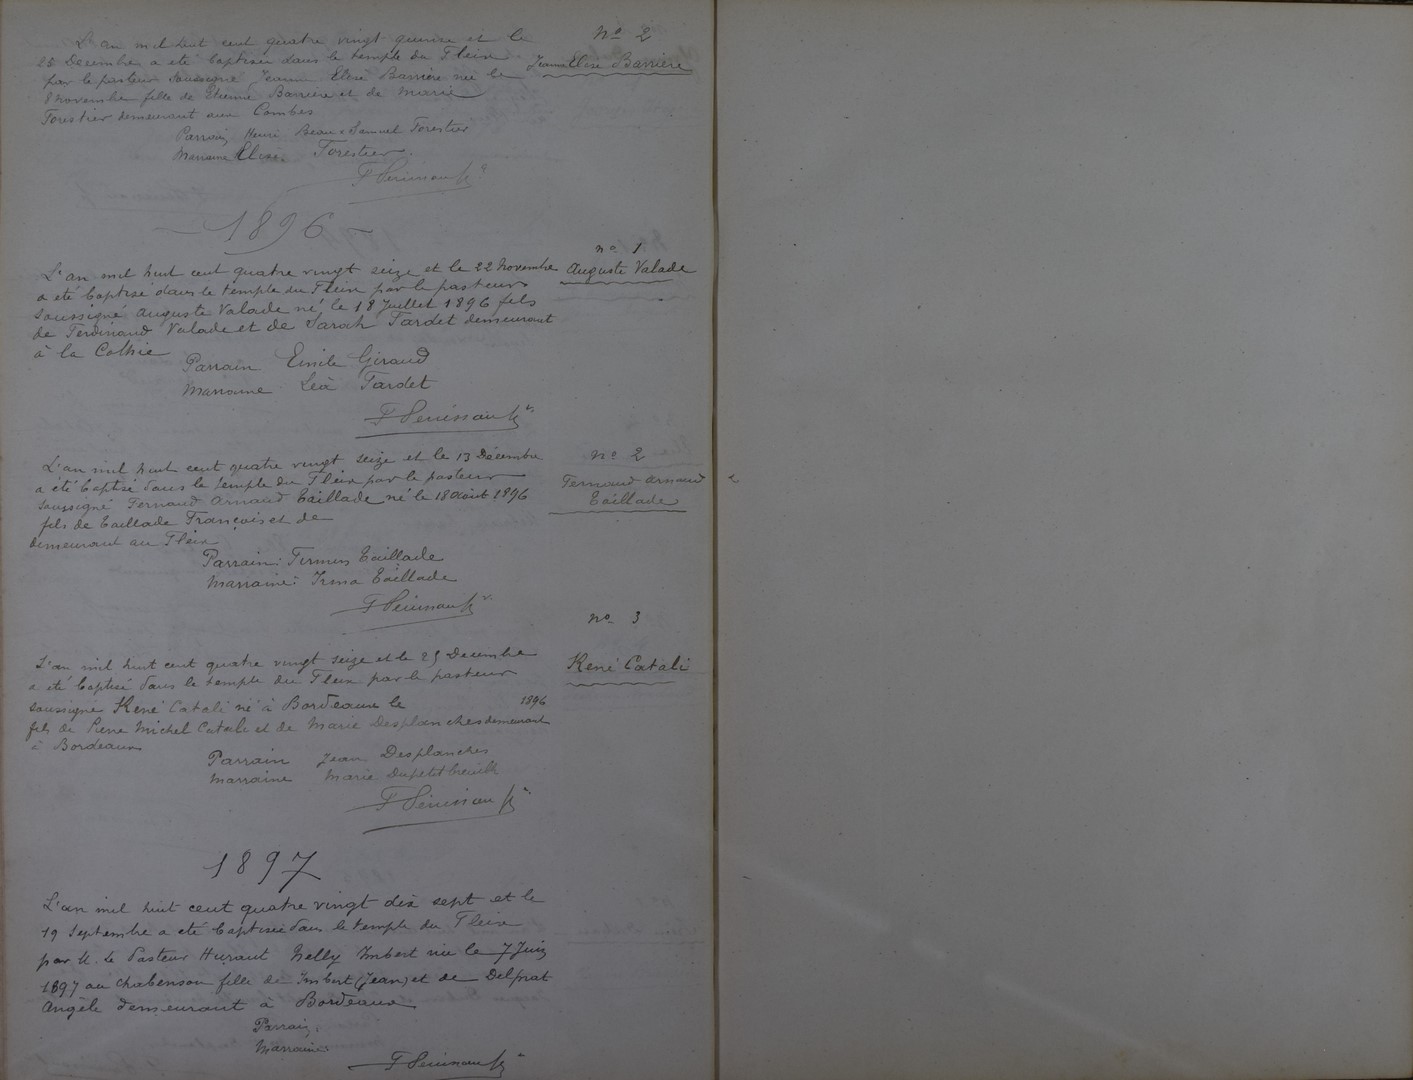 L'an mil huit cent quatre vingt quinze et le
25 Decembre a été baptisée dans le temple du Fleix
par le pasteur soussigné Jeanne Elise Barrière née le
8 Novembre fille de Etienne Barrière et de Marie
Forestier demeurant aux Combes
Parrain Henri Beau & Samuel Forestier
Marraine Elise Forestier
nº 2
Jeanne Elise Barrière
1896
nº 1
Auguste Valade
L'an mil huit cent quatre vingt seize et le 22 Novembre
a été baptisé dans le temple du Fleix par le pasteur
soussigné Auguste Valade né le 18 Juillet 1896 fils
de Ferdinand Valade et de Sarah Tardet demeurant
à la
Parrain Emile Giraud
Marraine Léa Tardet
nº 2
Fernand Arnaud
Taillade
L'an mil huit cent quatre vingt seize et le 13 Décembre
a été baptisé dans le temple du Fleix par le pasteur
soussigné Fernand Arnaud Taillade né le 18 Août 1896
fils de Taillade François et de
demeurant au Fleix
Parrain: Firmin Taillade
Marraine: Irma Taillade
nº 3
René Catali
L'an mil huit cent quatre vingt seize et le 25 Decembre
a été baptisé dans le temple du Fleix par le pasteur
soussigné René Catali né à Bordeaux le 1896
fils de Rene Michel Catali et de Marie Desplanches demeurant
à Bordeaux
Parrain Jean Desplanches
Marraine Marie
1897
L'an mil huit cent quatre vingt dix sept et le
19 Septembre a été baptisée dans le temple du Fleix
par M. le Pasteur Huraut Nelly Imbert née le 7 Juin
1897 au Chabenson fille de Imbert (Jean) et de Delprat
Angèle demeurant à Bordeaux
Parrain
Marraine